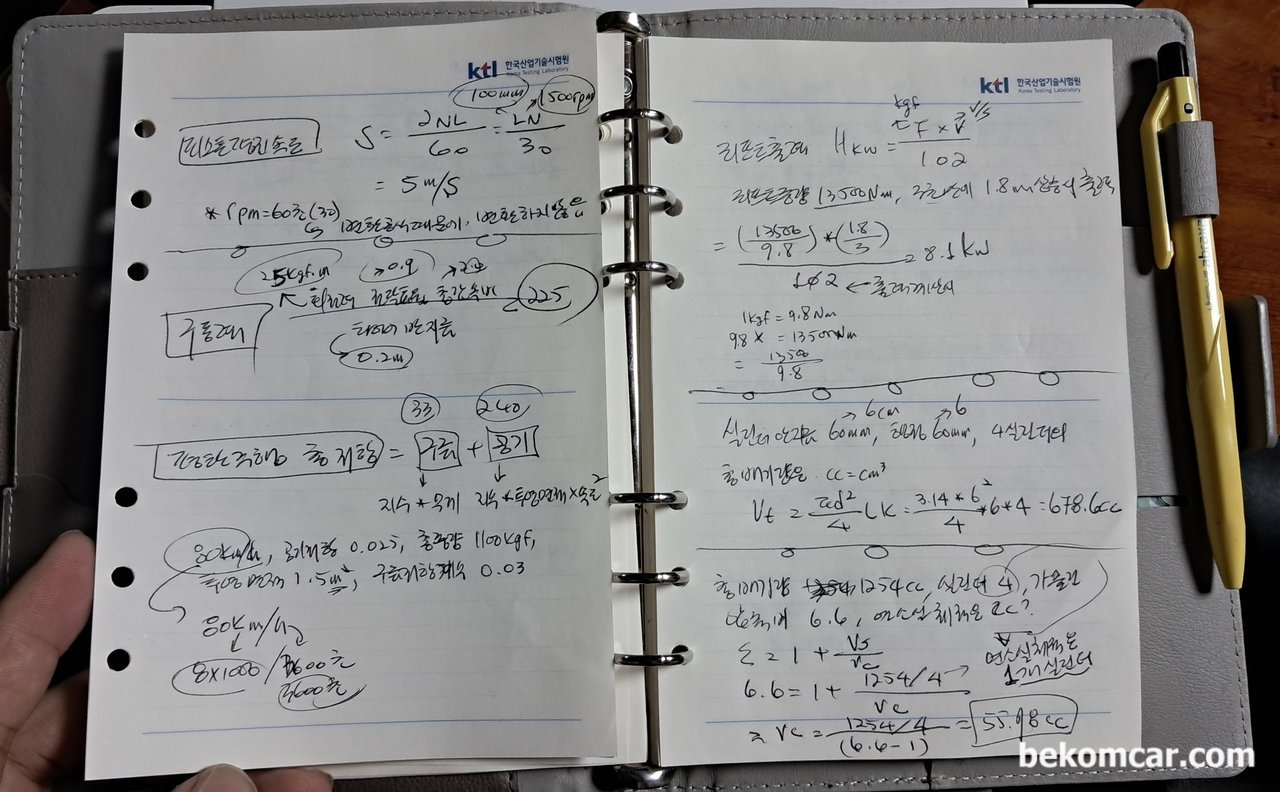 ktl 한국산업기술시험원
Korea Testing Laboratory
100mm 1500rpm
피스톤평균속도 S = 2NL/60 = LN/30
= 5m/s
* rpm=60초(30)
25kgf.m →0.9
225
구동력
0.2m
33 240
총 저항 = 구름 + 공기
지수*무게 지수*투영면적*속도²
80km/h, 공기저항 0.025, 총중량 1100kgf,
투영면적 1.5m², 구름저항계수 0.03
80km/h
8×1000/3600초
3600초
ktl 한국산업기술시험원
Korea Testing Laboratory
kgf
리프트출력 H kW = F × V/102
리프트중량 13500Nm, 3초 1.8m 상승시 출력
= (13500/9.8) * (1.8/3) = 8.1kW
102 ←
1kgf = 9.8Nm
9.8 * = 13500Nm
= 13500/9.8
→6cm →6
실린더 안지름 60mm, 행정 60mm, 4실린더의
총배기량은 cc=cm³
Vt = πd²/4 LK = 3.14*6²/4 *6*4 = 678.6cc
총배기량 1254cc, 실린더 4, 가솔린
압축비 6.6, 연소실체적은 cc?
ε = 1 + Vs/Vc
연소실체적은
1개실린더
6.6 = 1 + 1254/4/Vc
Vc = 1254/4/(6.6-1) = 55.98cc
bekomcar.com